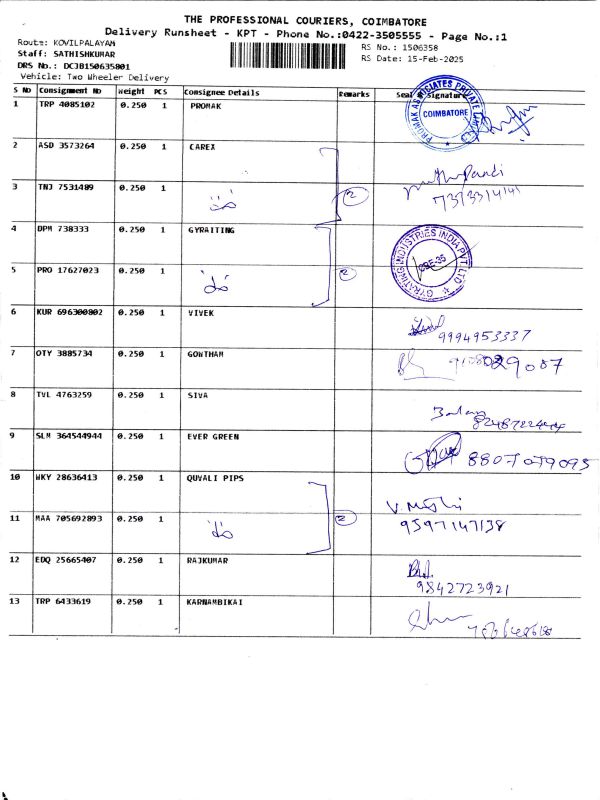 THE PROFESSIONAL COURIERS, COIMBATORE
Delivery Runsheet - KPT - Phone No.:0422-3505555 - Page No.:1
Route: KOVILPALAYAM
Staff: SATHISHKUMAR
DRS No.: DCJB150635801
Vehicle: Two Wheeler Delivery
RS No.: 1506358
RS Date: 15-Feb-2025
S No Consignment No Weight PCS Consignee Details Remarks Seal & Signature
1 TRP 4085102 0.250 1 PROMAK
PROMAK ASSOCIATES PRIVATE LIMITED
COIMBATORE
2 ASD 3573264 0.250 1 CAREX
3 TNJ 7531489 0.250 1 2
4 DPM 738333 0.250 1 GYRAITING
GYRATING INDUSTRIES INDIA PVT LTD
5 PRO 17627023 0.250 1 2
6 KUR 696300802 0.250 1 VIVEK
9994953337
7 OTY 3885734 0.250 1 GOWTHAM
8 TVL 4763259 0.250 1 SIVA
9 SLM 364544944 0.250 1 EVER GREEN
8807079095
10 WKY 28636413 0.250 1 QUVALI PIPS
11 MAA 705692893 0.250 1 2
9597147138
12 EDQ 25665407 0.250 1 RAJKUMAR
9842723921
13 TRP 6433619 0.250 1 KARNAMBIKAI